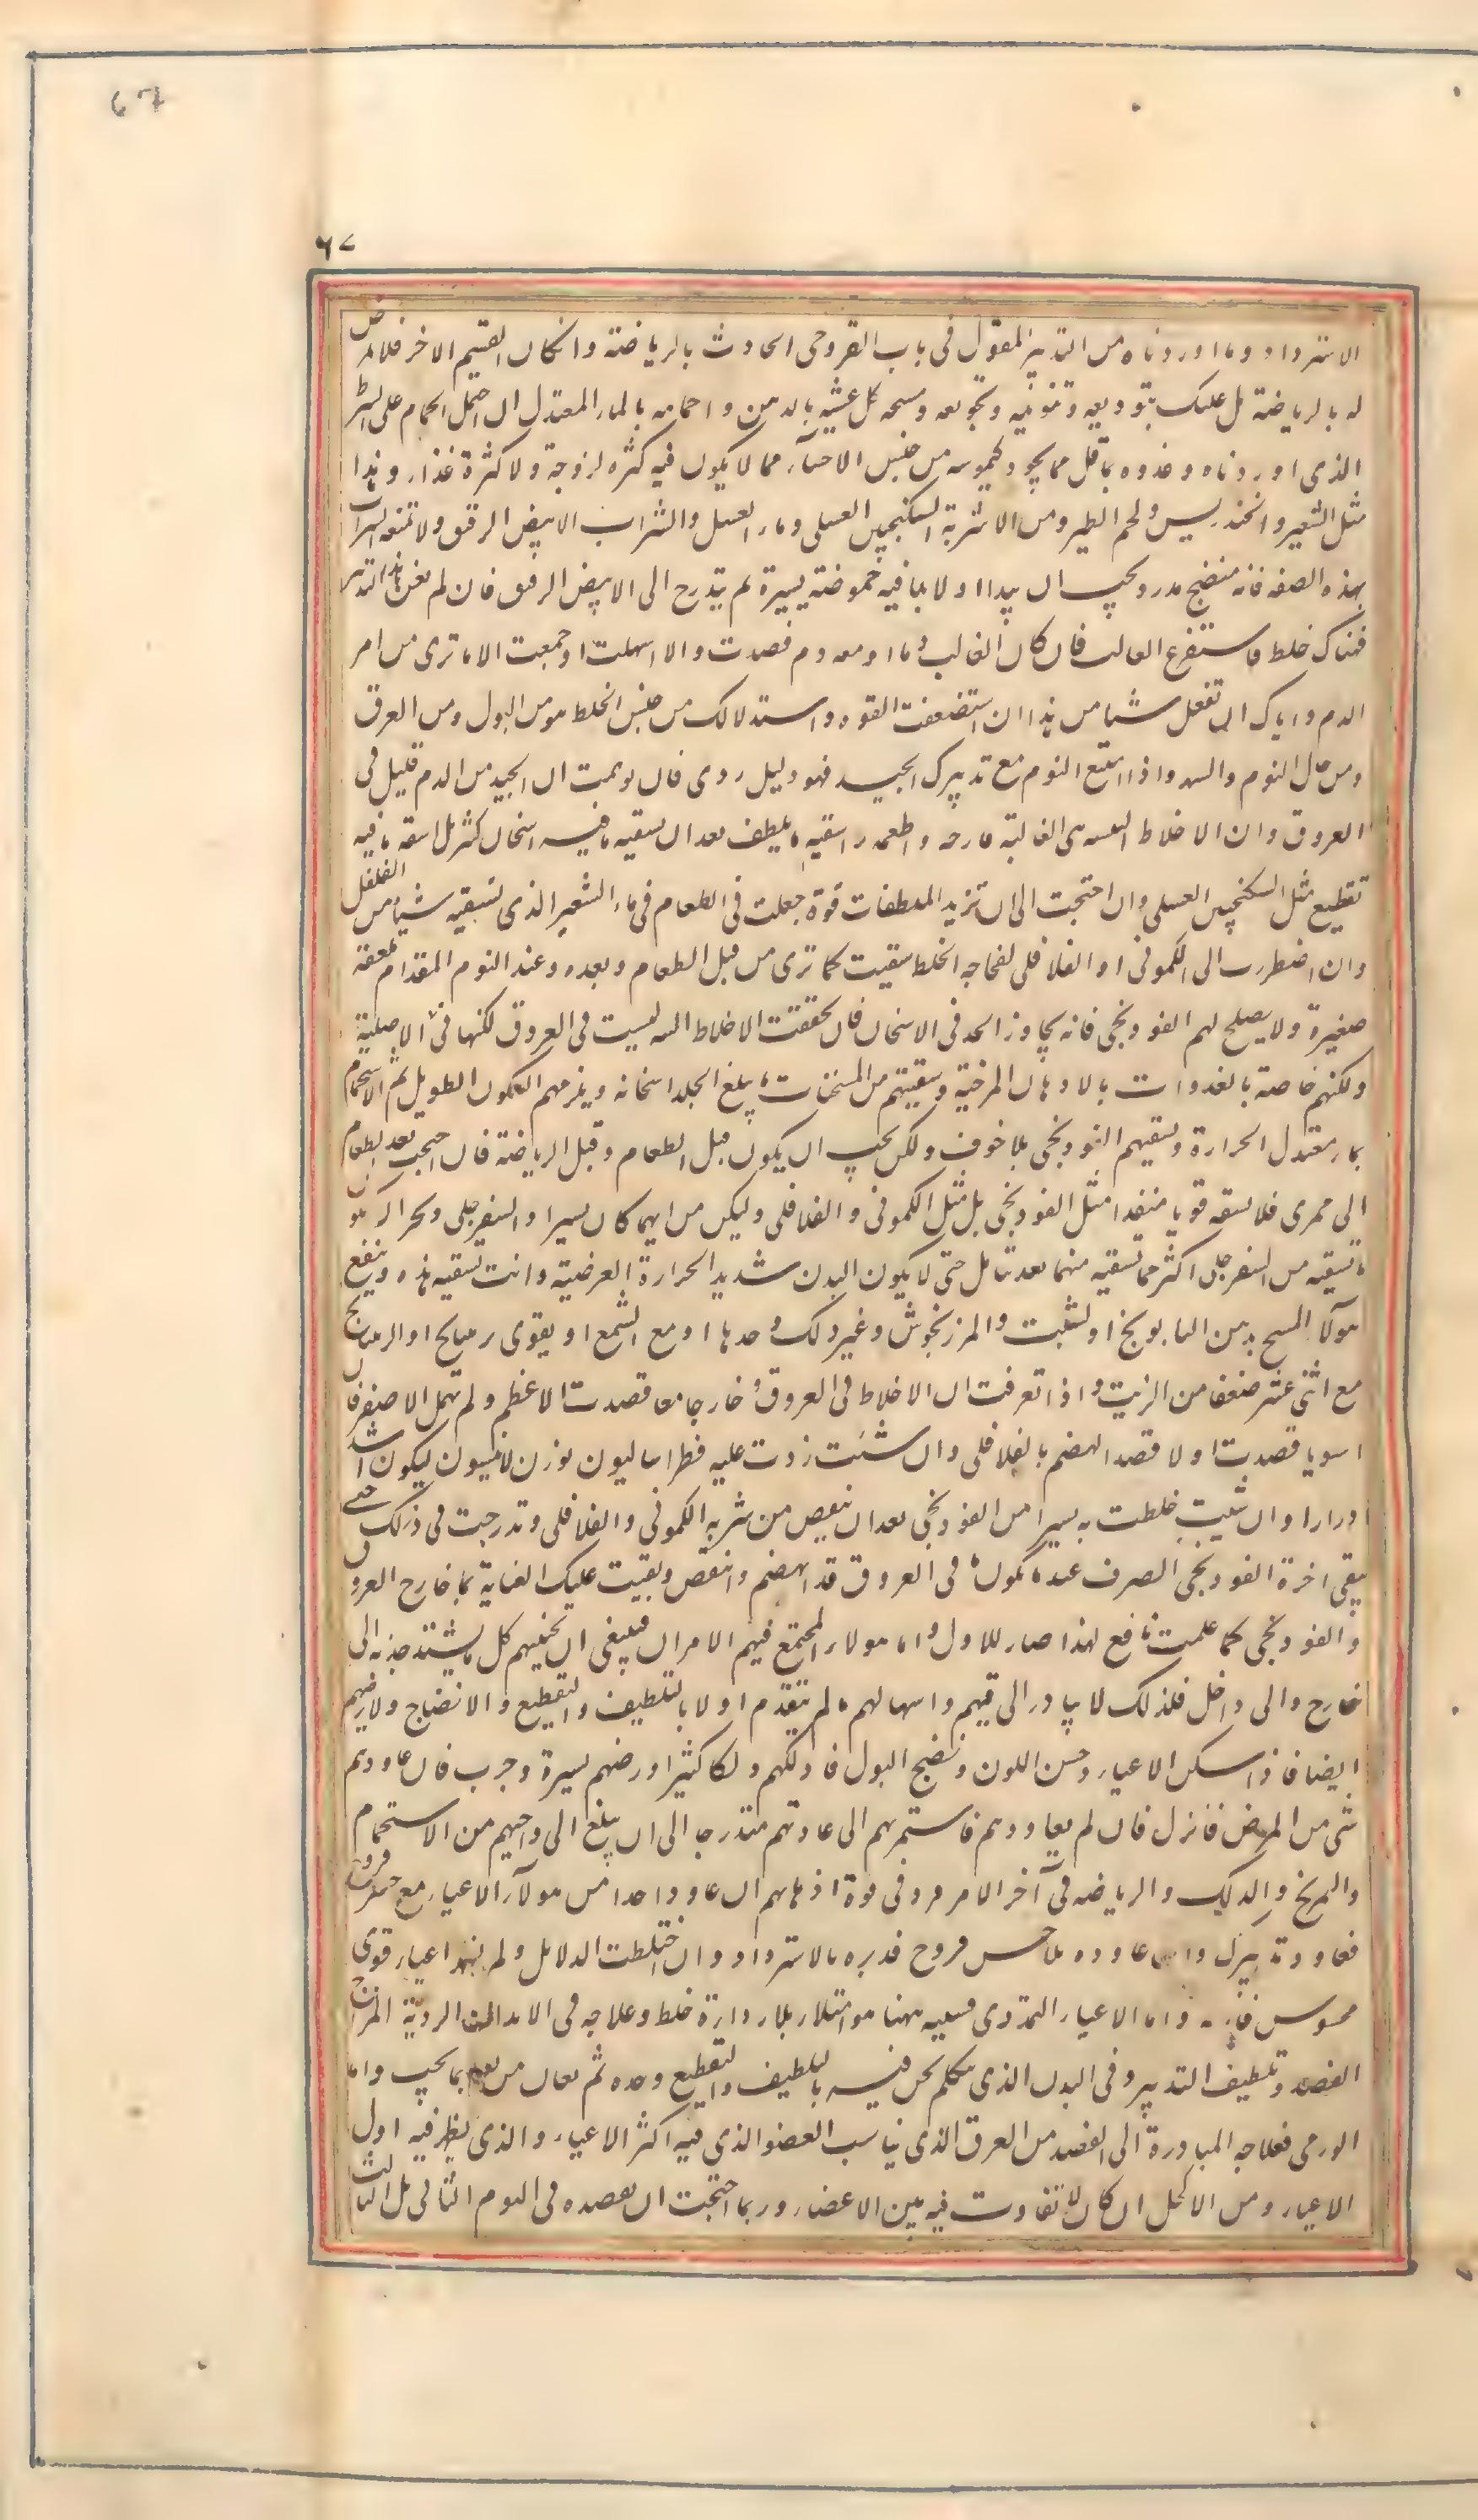 67
٦٧
الاسترداد وما اوردناه من التدبير المقول فى باب القروحى الحادث بالرياضة وانكان القسم الاخر فلا تعرض
له بالرياضة بل عليك بتوديعه وتنويمه وتجويعه ومسحه كل عشية بالدهن واحمامه بالماء المعتدل ان احتمل الحمام على الشرط
الذى اوردناه وغذوه بما قل مما يجود كيموسه من جنس الاحساء مما لا يكون فيه كثرة لزوجة ولا كثرة غذاء وهذا
مثل الشعير والخندريس ولحم الطير ومن الاشربة السكنجبين العسلى وماء العسل والشراب الابيض الرقيق ولا تمنعه الشراب
بهذه الصفه فانه منضج مدر ويجب ان يبدا اولا بما فيه حموضة يسيرة ثم يتدرج الى الابيض الرقيق فان لم يغن هذا التدبير
فهناك خلط فاستفرغ الغالب فان كان الغالب دما او معه دم فصدت والا اسهلت او جمعت الا ما ترى من امر
الدم واياك ان تفعل شيئا من هذا ان استضعفت القوه واستدلالك من جنس الخلط هو من البول ومن العرق
ومن حال النوم والسهر واذا امتنع النوم مع تدبيرك الجيد فهو دليل ردى فان توهمت ان الجيد من الدم قليل فى
العروق وان الاخلاط النية هى الغالبة فارحه واطعمه واسقيه ما يلطف بعد ان تسقيه ما فيه اسخان كثير بل اسقه ما فيه
تقطيع مثل السكنجبين العسلى وان احتجت الى ان تزيد الملطفات قوة جعلت فى الطعام فى ماء الشعير الذى تسقيه شيئا من الفلفل
وان اضطررت الى الكمونى او الفلافلى لفجاجه الخلط سقيت كما ترى من قبل الطعام وبعده وعند النوم المقدام ملعقة
صغيرة ولا يصلح لهم الفودنجى فانه يجاوز الحد فى الاسخان فان تحققت الاخلاط النية ليست فى العروق لكنها فى الاصلية
دلكتهم خاصة بالغدوات بالادهان المرخية وسقيتهم من المسخنات ما يبلغ الجلد اسخانه ويلزمهم السكون الطويل ثم الاستحمام
بماء معتدل الحرارة وتسقيهم الفودنجى بلا خوف ولكن يجب ان يكون قبل الطعام وقبل الرياضة فان احتجت بعد الطعام
الى ممرى فلا تسقه قويا منفذا مثل الفودنجى بل مثل الكمونى والفلافلى وليكن من ايهما كان يسيرا والسفرجلى ويجوز ان يكون
ما تسقيه من السفرجلى اكثر مما تسقيه منهما بعد تامل حتى لا يكون البدن شديد الحرارة العرضية وانت تسقيه هذه وينفع
هولاء المسح بدهن البابونج او الشبت والمرزنجوش وغير ذلك وحدها او مع الشمع او يقوى برتيانج او الرتيانج
مع اثنى عشر ضعفا من الزيت واذا تعرفت ان الاخلاط فى العروق وخارجا معا قصدت الاعظم ولم تهمل الاصغر فان
استويا قصدت اولا قصد الهضم بالفلافلى وان شئت زدت عليه فطراساليون بوزن الانيسون ليكون اشد
ادرارا وان شئت خلطت به يسيرا من الفودنجى بعد ان تنقص من شربة الكمونى والفلافلى وتدرجت فى ذلك حتى
يبقى اخره الفودنجى الصرف عند ما يكون ما فى العروق قد انهضم وانتفض وبقيت عليك العناية بما خارج العروق
والفودنجى كما علمت نافع لهذا ضار للاول واما هولاء المجتمع فيهم الامران فينبغى ان تجنبهم كل ما يشتد جذبه الى
خارج والى داخل فلذلك لا يبادر الى قيهم واسهالهم ما لم تتقدم اولا بالتلطيف والتقطيع والانضاج ولا ترضهم
ايضا فاذا سكن الاعياء وحسن اللون ونضج البول فادلكهم دلكا كثيرا ورضهم يسيرة وجرب فان عاودهم
شى من المرض فانزل فان لم يعاودهم فاستمر بهم الى عادتهم متدرجا الى ان يبلغ الى واجبهم من الاستحمام
والتمريخ والدلك والرياضه فى آخر الامر وزد فى قوة ادهانهم ان عاود واحدا من هولاء الاعياء مع حس قروح
فعاود تدبيرك وان عاوده بلا حس قروح فدبره بالاسترداد وان اختلطت الدلايل ولم يظهر اعياء قوى
محسوس فارحه واما الاعياء التمددى فسببه هاهنا هو امتلاء بلا رداءة خلط وعلاجه فى الابدان الردية المزاج
الفصد وتلطيف التدبير وفى البدن الذى نتكلم نحن فيه بالتلطيف والتقطيع وحده ثم تعان من بعد بما يجب واما
الورمى فعلاجه المبادرة الى الفصد من العرق الذى يناسب العضو الذى فيه اكثر الاعياء والذى يظهر فيه اول
الاعياء ومن الاكحل ان كان لا تفاوت فيه بين الاعضاء وربما احتجت ان تفصده فى اليوم الثانى بل الثالث